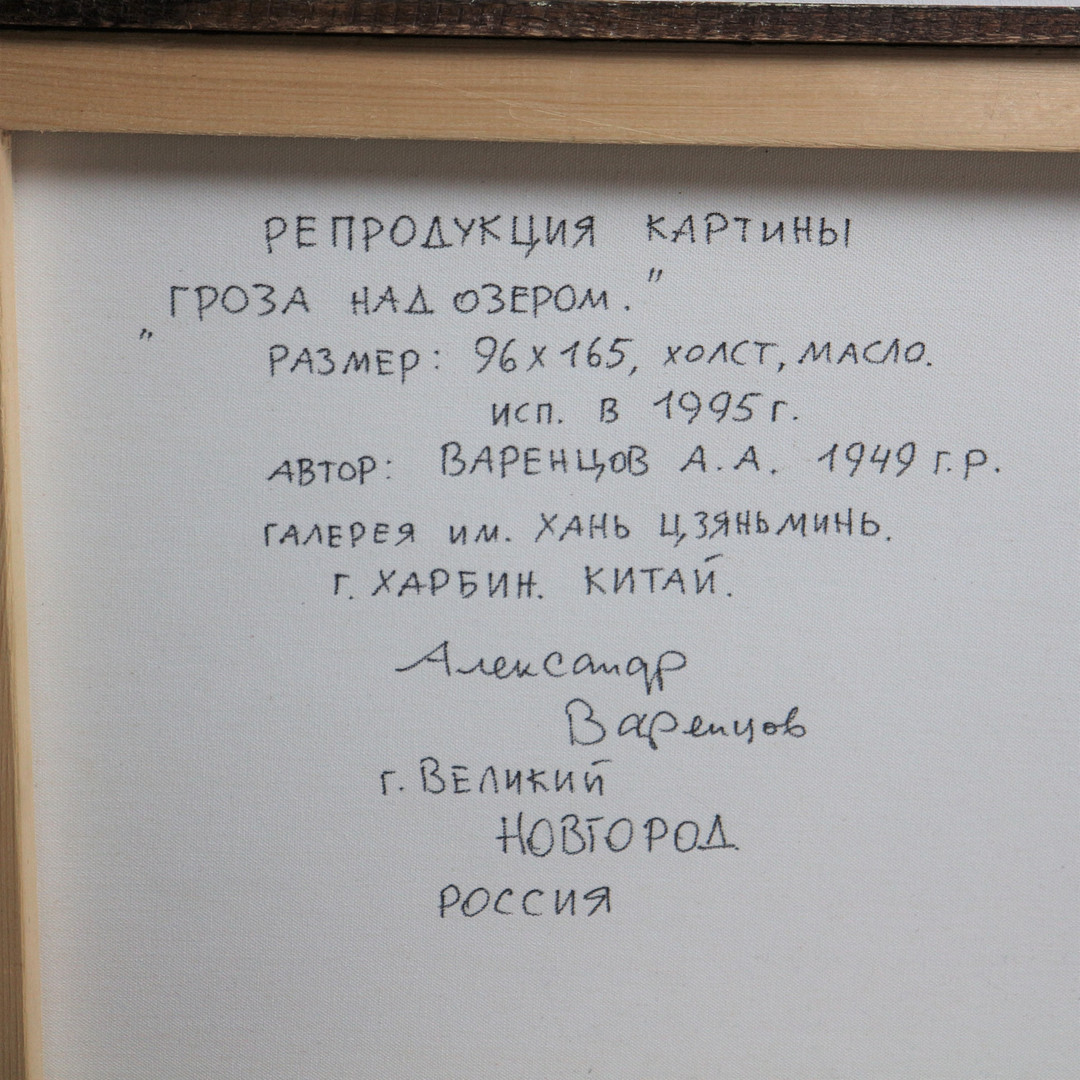 РЕПРОДУКЦИЯ КАРТИНЫ
„ГРОЗА НАД ОЗЕРОМ."
РАЗМЕР: 96 х 165, ХОЛСТ, МАСЛО.
ИСП. В 1995 г.
АВТОР: ВАРЕНЦОВ А.А. 1949 г.р.
ГАЛЕРЕЯ им. ХАНЬ ЦЗЯНЬМИНЬ.
г. ХАРБИН. КИТАЙ.
Александр
Варенцов
г. ВЕЛИКИЙ
НОВГОРОД
РОССИЯ